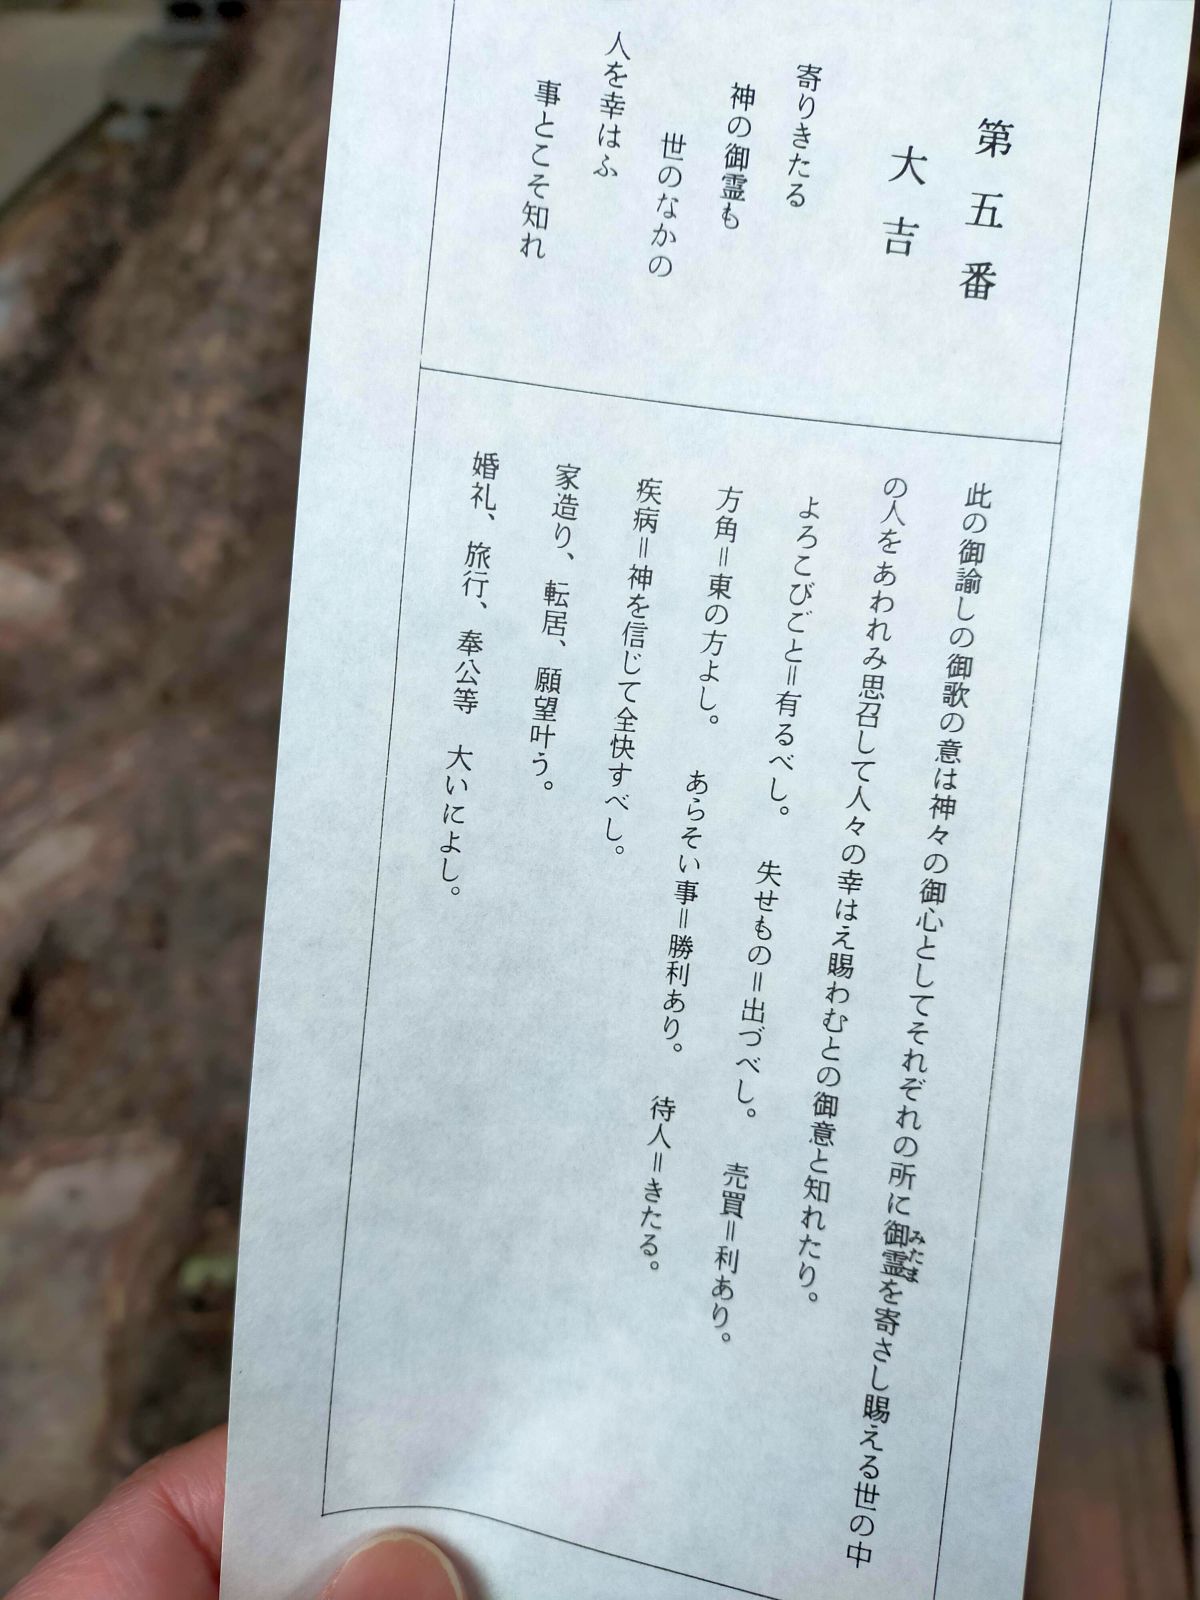 第五番
大吉
寄りきたる
神の御霊も
世のなかの
人を幸はふ
事とこそ知れ
此の御諭しの御歌の意は神々の御心としてそれぞれの所に御霊を寄さし賜える世の中
みたま
の人をあわれみ思召して人々の幸はえ賜わむとの御意と知れたり。
よろこびごと＝有るべし。　失せもの＝出づべし。　売買＝利あり。
方角＝東の方よし。　あらそい事＝勝利あり。　待人＝きたる。
疾病＝神を信じて全快すべし。
家造り、転居、願望叶う。
婚礼、旅行、奉公等　大いによし。